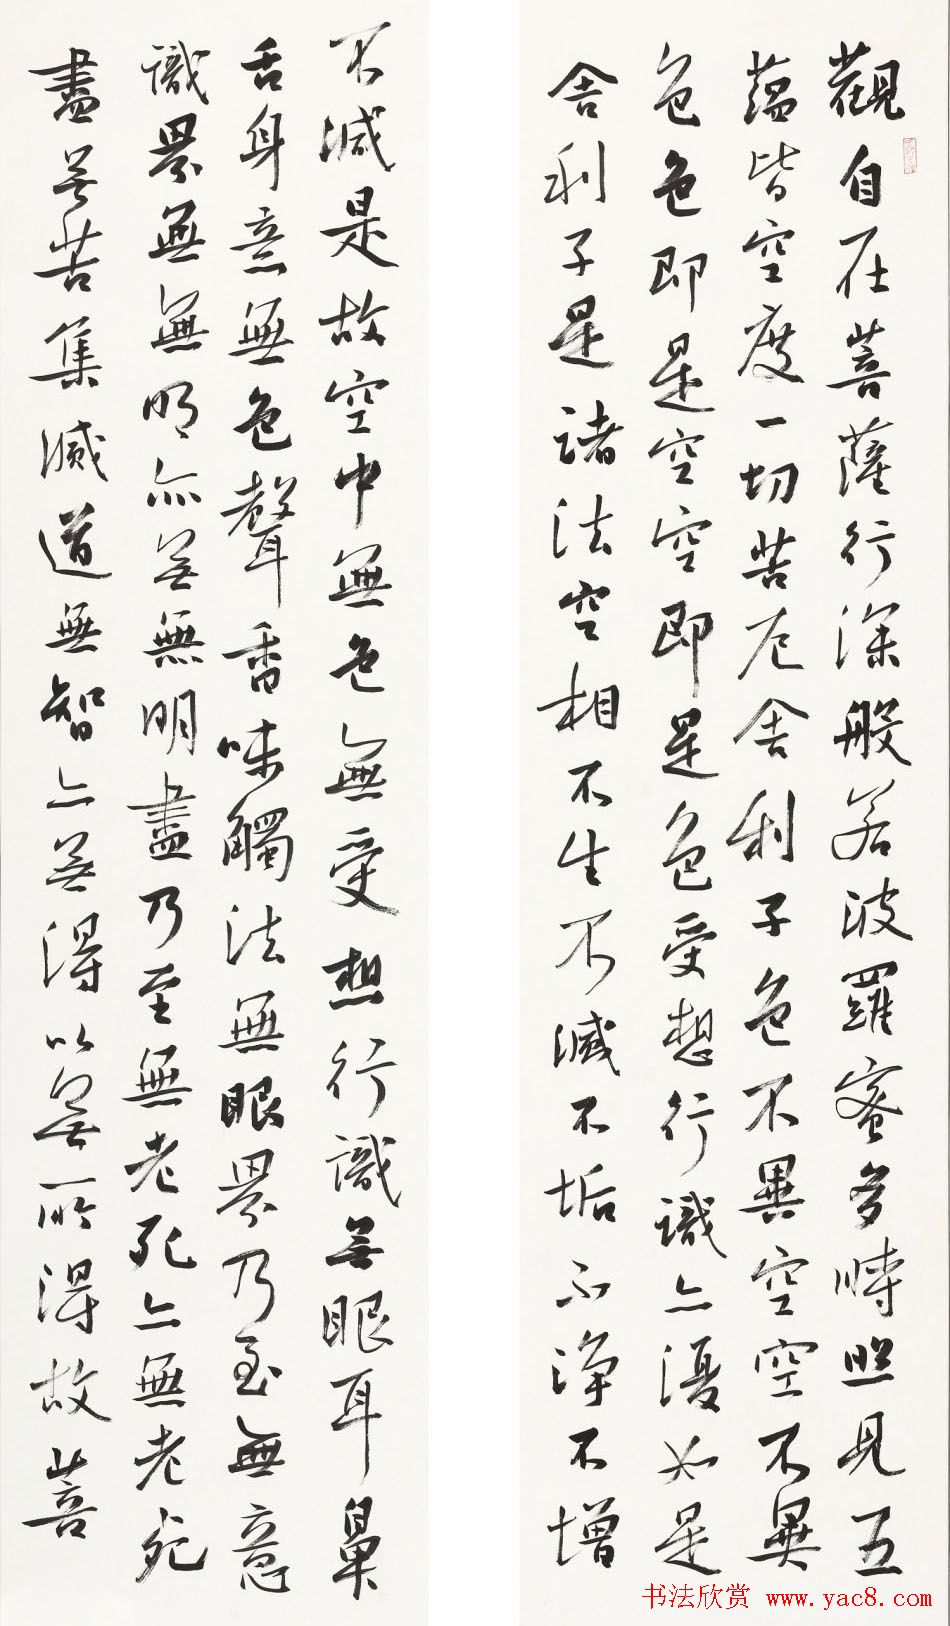 觀自在菩薩行深般若波羅蜜多時照見五
蘊皆空度一切苦厄舍利子色不異空空不異
色色即是空空即是色受想行識亦復如是
舍利子是諸法空相不生不滅不垢不淨不增
不減是故空中無色無受想行識無眼耳鼻
舌身意無色聲香味觸法無眼界乃至無意
識界無無明亦無無明盡乃至無老死亦無老死
盡無苦集滅道無智亦無得以無所得故菩
书法欣赏 www.yac8.com